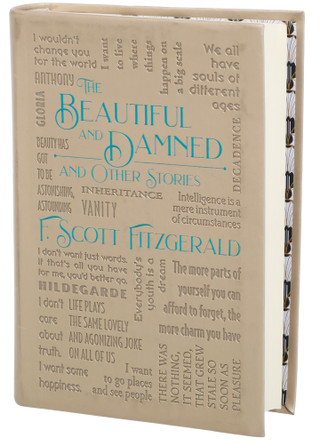 I wouldn't
change you
for the world
I want
to live
where
things
happen on
a big scale
We all
have
souls of
different
ages
ANTHONY
GLORIA
DECADENCE
The
Beautiful
and Damned
and Other Stories
BEAUTY HAS
GOT
TO BE
ASTONISHING,
ASTOUNDING
INHERITANCE
VANITY
Intelligence is a
mere instrument
of circumstances
F. Scott Fitzgerald
I don't want just words.
If that's all you have
for me, you'd better go.
HILDEGARDE
Everybody's
youth is a
dream
The more parts of
yourself you can
afford to forget, the
more charm you have
I don't
care
about
truth.
LIFE PLAYS
THE SAME LOVELY
AND AGONIZING JOKE
ON ALL OF US
I want some
happiness.
I want
to go places
and see people
THERE WAS
NOTHING,
IT SEEMED,
THAT GREW
STALE SO
SOON AS
PLEASURE